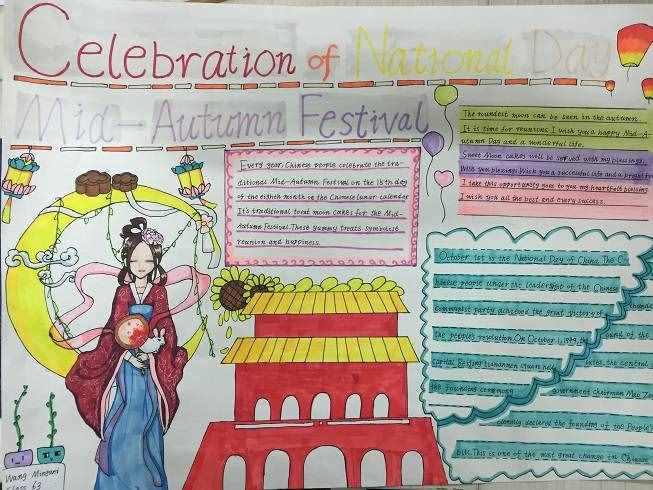 Celebration of National Day
Mid-Autumn Festival
Every year, Chinese people celebrate the tra-
ditional Mid-Autumn Festival on the 15th day
of the eighth month in the Chinese lunar calendar
It's traditional to eat moon cakes for the Mid-
Autumn Festival. These yummy treats symbolize
reunion and happiness.
The roundest moon can be seen in the autumn.
It is time for reunions I wish you a happy Mid-A-
utumn Day and a wonderful life.
Sweet Moon cakes will be served with my blessings,
Wish you a successful life and a
I take this opportunity give to you my heartfelt blessing
I wish you all the best and every success.
October 1st is the National Day of China. The
people under the leadership of the Chinese
communist party achieved the great victory of
the people's revolution. On October 1, 1949, the
capital Beijing tiananmen square held the central
the founding ceremony government chairman Mao
declared the founding of the People's
This is one of the most great change in Chinese
Wang
Class 63